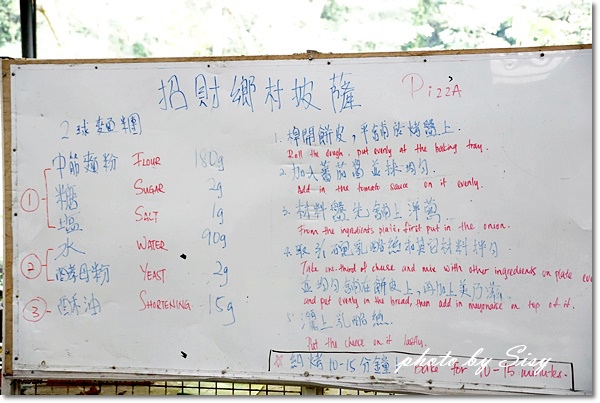 招財鄉村披薩 PizzA
2球麵糰
中筋麵粉 FLOUR 180g
① 糖 SUGAR 2g
鹽 SALT 1g
水 WATER 90g
② 酵母粉 YEAST 2g
③ 酥油 SHORTENING 15g
1. 桿開餅皮，平鋪於烤盤上.
Roll the dough, put evenly at the baking tray.
2. 加入蕃茄醬並抹均勻.
Add in the tomato sauce on it evenly.
3. 材料盤先鋪上洋蔥.
From the ingredients plate, first put in the onion.
4. 取 乳酪絲和其它材料拌勻
Take one-third of cheese and mix with other ingredients on plate evenly
並均勻鋪在餅皮上,再加上美乃滋
and put evenly in the bread, then add in mayonaise on top of it.
5. 灑上乳酪絲
Put the cheese on it lastly.
※ 烤10-15分鐘 bake for 10-15 minutes.
photo by Sisy